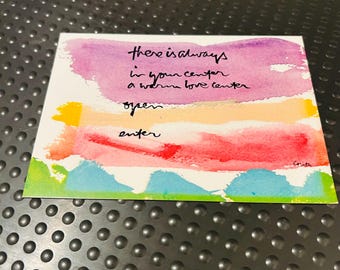 there is always
in your center
a warm love center
open
enter